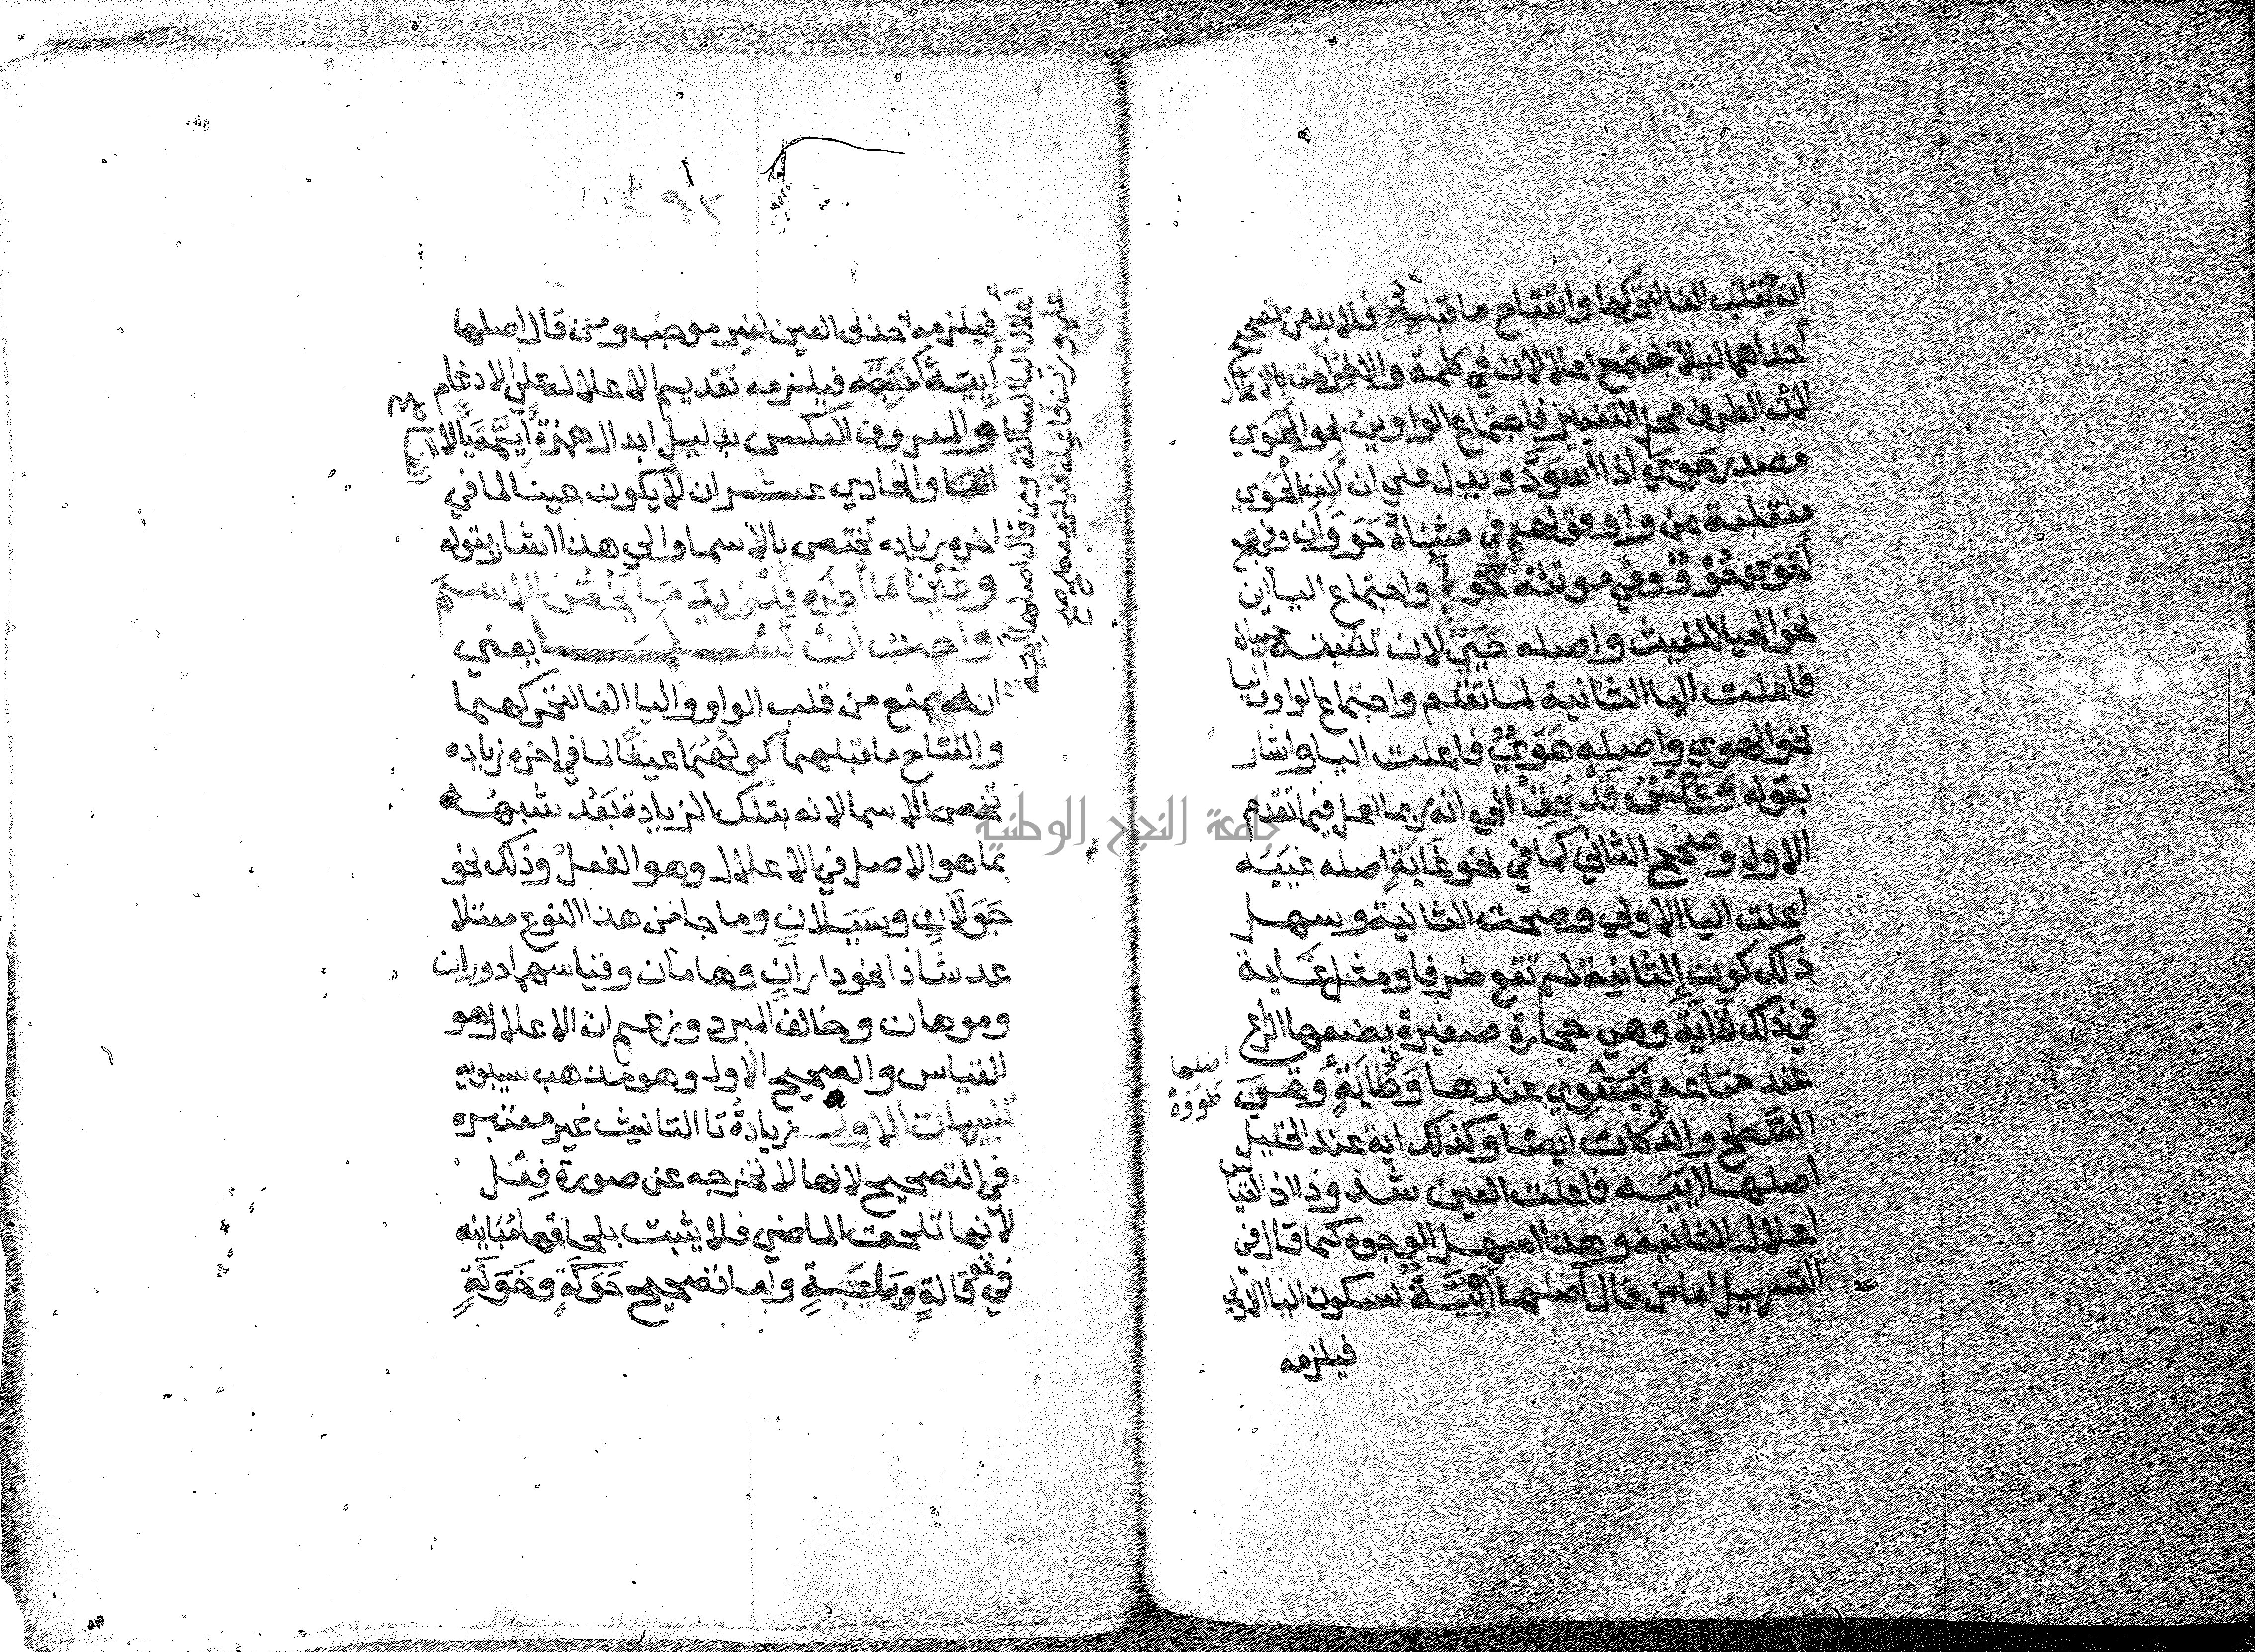 ان تقلب الفا لتحركها وانفتاح ما قبلها فلا بد من تصحيح
احداهما ليلا يجتمع اعلالان في كلمة والاخر احق بالاعلال
لان الطرف محل التغيير فاجتماع الواوين نحو الحوي
مصدر حَوِيَ اذا اسْوَدَّ ويدل علي ان الف الحوي
منقلبة عن واو قولهم في مثناه حَوَوَان وفي جمع
أحْوَي حُوْوٌ وفي مونثه حَوَّا واجتماع الياأين
نحو الحيا للغيث واصله حَيَيٌ لان تثنيته حييان
فاعلت اليا الثانية لما تقدم واجتماع الواو واليا
نحو الهوي واصله هَوَيٌ فاعلت اليا واشار
بقوله وعكسٌ قَدْ يَحِقّ الي انه ربما اعل فيما تقدم
الاول وصحح الثاني كما في نحو غَايَةٍ اصله غيَيَه
اعلت اليا الاولي وصحت الثانية وسهل
ذلك كون الثانية لم تقع طرفا ومثل غَاية
في ذلك ثَايَةٌ وهي حجارة صغيرة يضعها الراعي
عند متاعه فَيَثْوِي عندها وَطَايَةٍ وَهِيَ
اصلها
طَوَوَةٌ
السَّطح والدكان ايضا وكذلك اية عند الخليل
اصلها اَيَيَه فاعلت العين شذوذا اذ القياس
اعلال الثانية وهذا اسهل الوجوه كما قال في
التسهيل اما من قال اصلها أَيْيَةٌ بسكون اليا الاولي
فيلزمه
٢٩٣
اعلال اليا الساكنة ومن قال اصلها آيِيَة
علي وزن فاعلة فيلزمه
فيلزمه حذف العين لغير موجب ومن قال اصلها
أَيِيَةٌ كنَبِقَه فيلزمه تقديم الاعلال علي الادغام
والمعروف العكس بدليل ابدال همزة أيِمَّةَ يَأً لا
الفا والحادي عشر ان لا يكون عينا لما في
اخره زيادة تختص بالاسما والي هذا اشار بقوله
وعَيْنُ مَا آخِرَه قَدْ زِيدَ مَا يَخُصُّ الاسم
واجبٌ انْ يَسْلَمَا يعني
انه يمنع من قلب الواو واليا الفا لتحركهما
وانفتاح ما قبلهما كونُهُمَا عينًا لما في اخره زياده
تخص الاسما لانه بتلك الزيادة بَعُد شبهُه
بما هو الاصل في الاعلال وهو الفعلُ وذلك نحو
جَوَلَانٍ وسَيَلانٍ وما جا من هذا النوع معتلا
عد شاذا نحو دارانٍ وهامان وقياسهما دوران
وموهان وخالف المبرد وزعم ان الاعلال هو
القياس والصحيح الاول وهو مذهب سيبويه
تنبيهات الاول زيادةُ تا التانيث غير معتبره
في التصحيح لانها لا تخرجه عن صورة فِعْل
لانها تلحق الماضي فلا يثبت بلحاقها مُبَاينه
في نحو قَالَةٍ وبَاعَةٍ واما تصحيح حَوَكَةٍ وخَوَنَةٍ
جامعة النجاح الوطنية